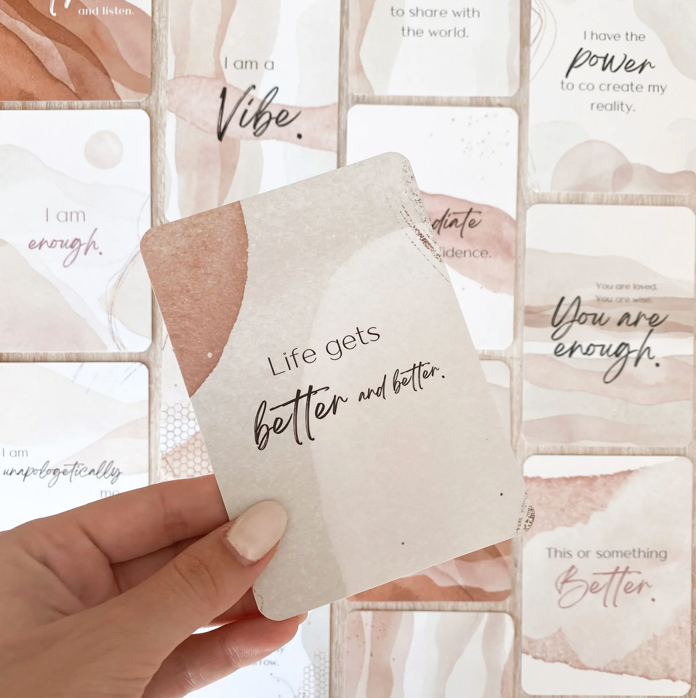 and listen.
I am a
Vibe.
to share with
the world.
I have the
power
to co create my
reality.
I am
enough.
You are loved.
You are wise.
You are
enough.
Life gets
better and better.
I am
unapologetically
me
This or something
Better.